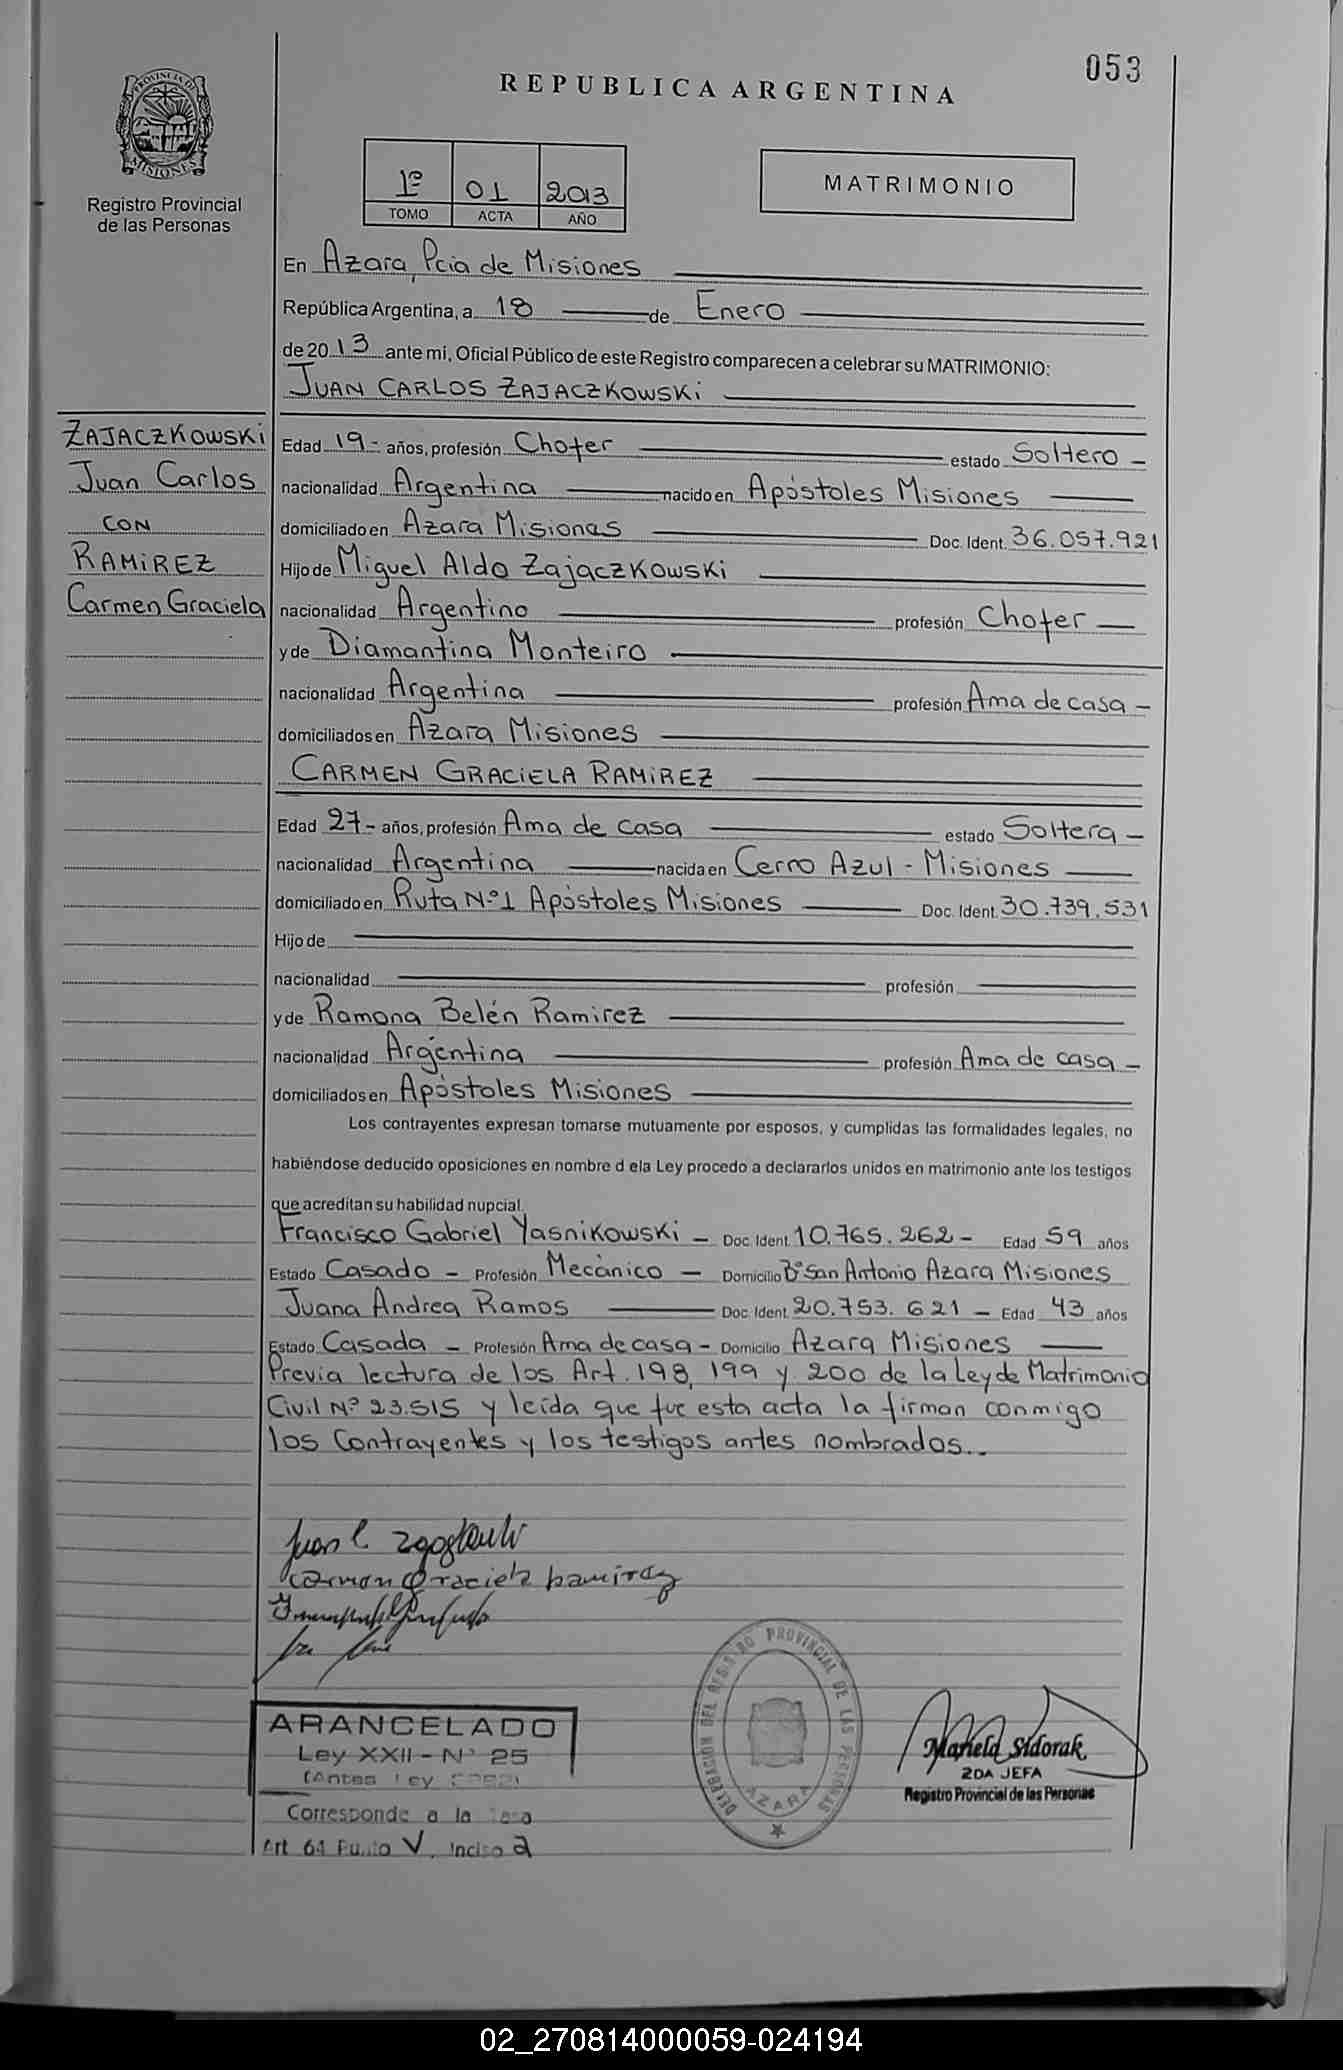 053
REPUBLICA ARGENTINA
PROVINCIA DE
MISIONES
Registro Provincial
de las Personas
1º 01 2013
TOMO ACTA AÑO
MATRIMONIO
En Azara, Pcia de Misiones
República Argentina, a 18 de Enero
de 2013 ante mí, Oficial Público de este Registro comparecen a celebrar su MATRIMONIO:
JUAN CARLOS ZAJACZKOWSKi
ZAJACZKOWSKi
Juan Carlos
CON
RAMiREZ
Carmen Graciela
Edad 19- años, profesión Chofer estado Soltero -
nacionalidad Argentina nacido en Apóstoles Misiones
domiciliado en Azara Misiones Doc. Ident. 36.057.921
Hijo de Miguel Aldo Zajaczkowski
nacionalidad Argentino profesión Chofer
y de Diamantina Monteiro
nacionalidad Argentina profesión Ama de casa -
domiciliados en Azara Misiones
CARMEN GRACiELA RAMiREZ
Edad 27- años, profesión Ama de casa estado Soltera -
nacionalidad Argentina nacida en Cerro Azul - Misiones
domiciliado en Ruta Nº1 Apóstoles Misiones Doc. Ident. 30.739.531
Hijo de
nacionalidad profesión
y de Ramona Belén Ramirez
nacionalidad Argentina profesión Ama de casa -
domiciliados en Apóstoles Misiones
Los contrayentes expresan tomarse mutuamente por esposos, y cumplidas las formalidades legales, no
habiéndose deducido oposiciones en nombre d ela Ley procedo a declararlos unidos en matrimonio ante los testigos
que acreditan su habilidad nupcial.
Francisco Gabriel Yasnikowski - Doc. Ident. 10.765.262 - Edad 59 años
Estado Casado - Profesión Mecánico - Domicilio Bº San Antonio Azara Misiones
Juana Andrea Ramos Doc. Ident. 20.753.621 - Edad 43 años
Estado Casada - Profesión Ama de casa - Domicilio Azara Misiones
Previa lectura de los Art. 198, 199 y 200 de la Ley de Matrimonio
Civil Nº 23.515 y leída que fue esta acta la firman conmigo
los Contrayentes y los testigos antes nombrados..
Juan C
Carmen Graciela Ramirez
ARANCELADO
Ley XXII - Nº 25
(Antes Ley
Corresponde a la Tasa
Art 64 Punto V. Inciso a
DELEGACION DEL REGISTRO PROVINCIAL DE LAS PERSONAS
AZARA
Mariela Sidorak
2DA JEFA
Registro Provincial de las Personas
02_270814000059-024194